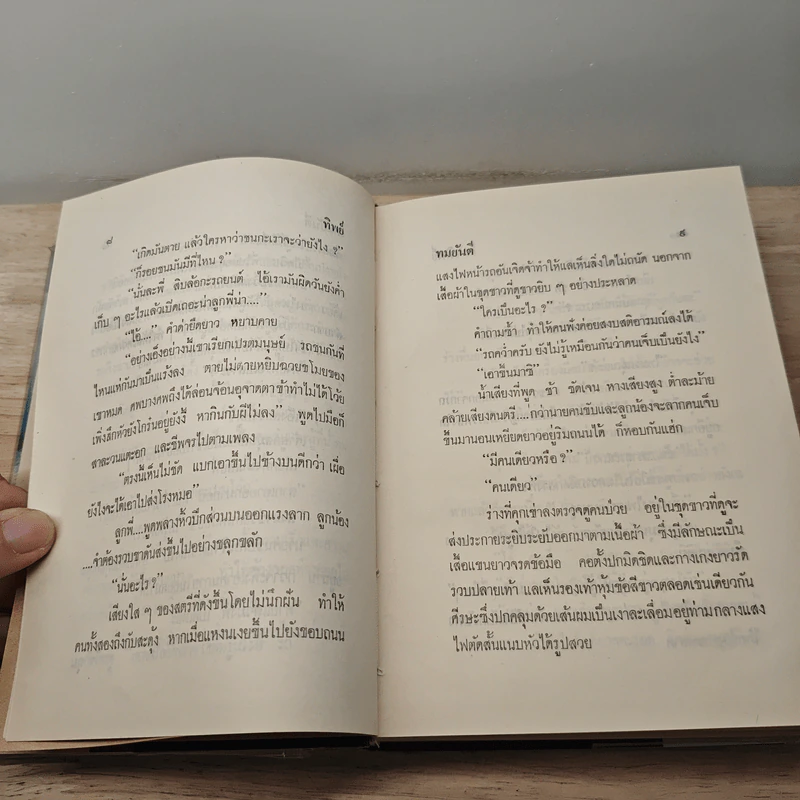 ๘
ทิพย์
“เกิดมันตาย แล้วใครหาว่าชนกะเราจะว่ายังไง ?”
“ก็รอยชนมันมีที่ไหน ?”
“นั่นละพี่ สิบล้อกะรถยนต์ ไอ้เรามันผิดวันยังค่ำ
เก็บ ๆ อะไรแล้วเปิดเถอะน่าลูกพี่น่า....”
“ไอ้....” คำด่ายืดยาว หยาบคาย
“อย่างเอ็งอย่างนี้เขาเรียกเปรตมนุษย์ รถชนกันที่
ไหนแห่กันมาเป็นแร้งลง ตายไม่ตายหยิบฉวยขโมยของ
เขาหมด ศพบางศพถึงได้ล่อนจ้อนอุจาดตาซ้ำทำไม่ได้โว้ย
เพิ่งสึกหัวยังโกร๋นอยู่ยังงี้ หากินกับผีไม่ลง” พูดไปมือก็
สาละวนแตะอก และชีพจรไปตามเพลง
“ตรงนี้เห็นไม่ชัด แบกเอาขึ้นไปข้างบนดีกว่า เผื่อ
ยังไงจะได้เอาไปส่งโรงหมอ”
ลูกพี่....พูดพลางห้าวบึกส่วนบนออกแรงลาก ลูกน้อง
....จำต้องรวบขาดันส่งขึ้นไปอย่างขลุกขลัก
“นั่นอะไร ?”
เสียงใส ๆ ของสตรีที่ดังขึ้นโดยไม่นึกฝัน ทำให้
คนทั้งสองถึงกับสะดุ้ง หากเมื่อแหงนเงยขึ้นไปยังขอบถนน
ทมยันตี
๙
แสงไฟหน้ารถอันเจิดจ้าทำให้แลเห็นสิ่งใดไม่ถนัด นอกจาก
เสื้อผ้าในชุดขาวที่ดูขาวยิบ ๆ อย่างประหลาด
“ใครเป็นอะไร ?”
คำถามซ้ำ ทำให้คนฟังค่อยสงบสติอารมณ์ลงได้
“รถคว่ำครับ ยังไม่รู้เหมือนกันว่าคนเจ็บเป็นยังไง”
“เอาขึ้นมาซิ”
น้ำเสียงที่พูด ช้า ชัดเจน หางเสียงสูง ต่ำละม้าย
คล้ายเสียงดนตรี....กว่านายคนขับและลูกน้องจะลากคนเจ็บ
ขึ้นมานอนเหยียดยาวอยู่ริมถนนได้ ก็หอบกันแฮ่ก
“มีคนเดียวหรือ ?”
“คนเดียว”
ร่างที่คุกเข่าลงตรวจดูคนป่วย อยู่ในชุดขาวที่ดูจะ
ส่งประกายระยิบระยับออกมาตามเนื้อผ้า ซึ่งมีลักษณะเป็น
เสื้อแขนยาวจรดข้อมือ คอตั้งปกมิดชิดและกางเกงยาวรัด
รวบปลายเท้า แลเห็นรองเท้าหุ้มข้อสีขาวตลอดเช่นเดียวกัน
ศีรษะซึ่งปกคลุมด้วยเส้นผมเป็นเงาละเลื่อมอยู่ท่ามกลางแสง
ไฟตัดสั้นแนบหัวได้รูปสวย